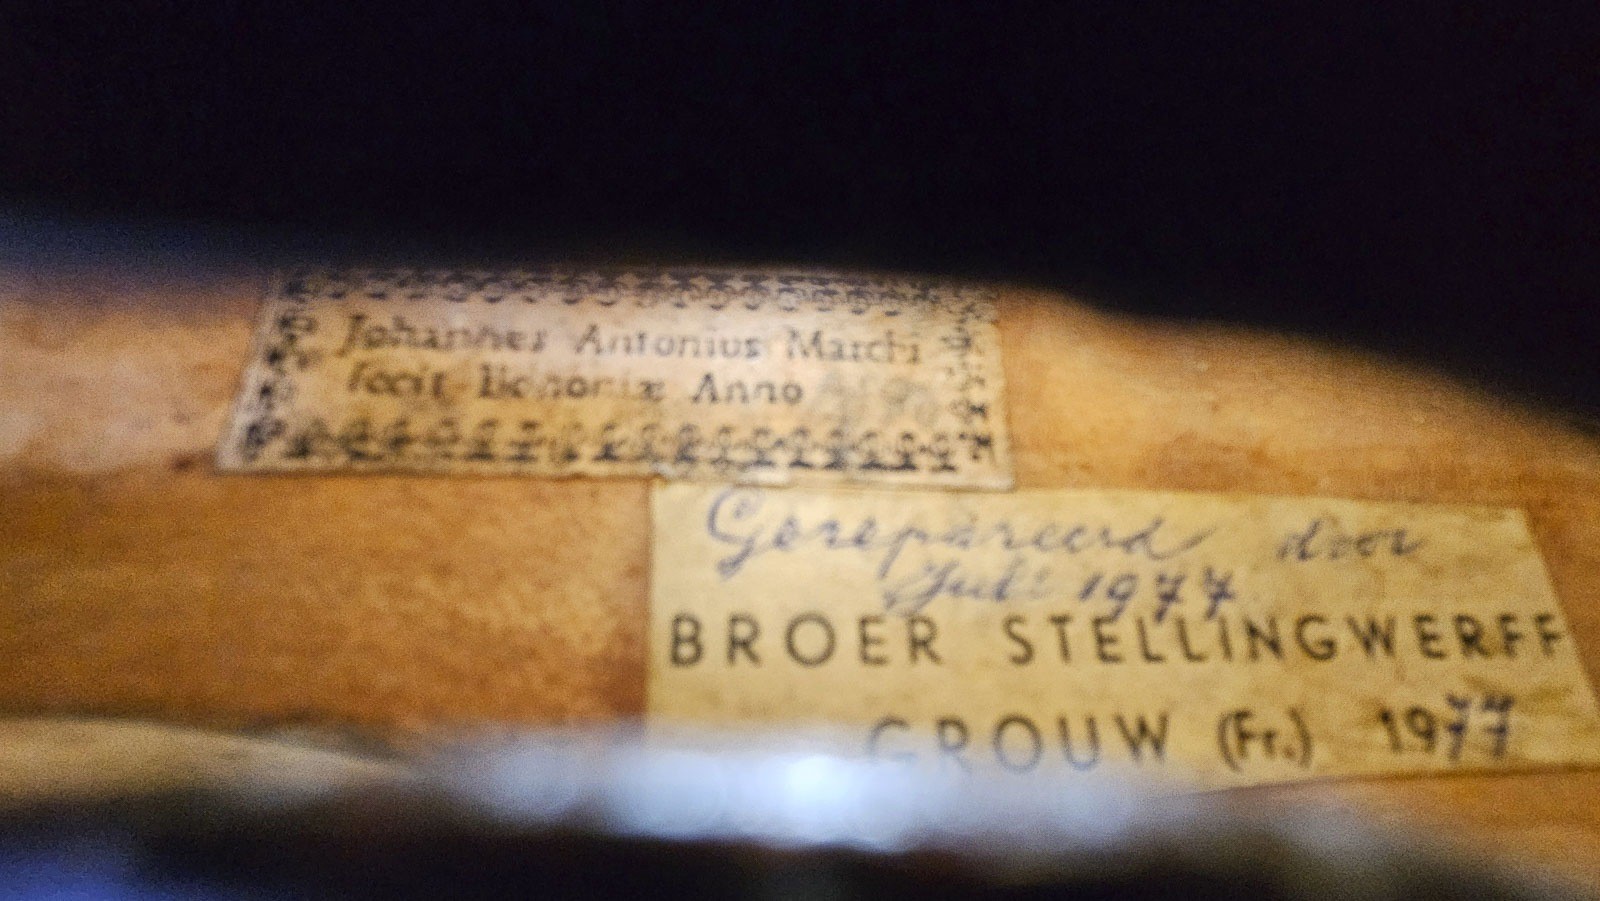 Johannes Antonius Marchi
fecit Bononiæ Anno
Gerepareerd door
Juli 1977
BROER STELLINGWERFF
GROUW (Fr.) 1977